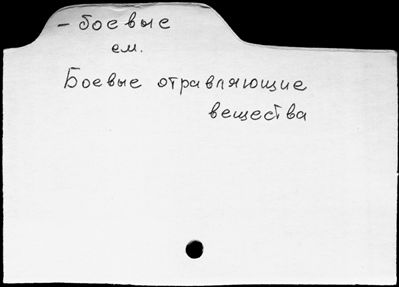 - боевые
см.
Боевые отравляющие
вещества